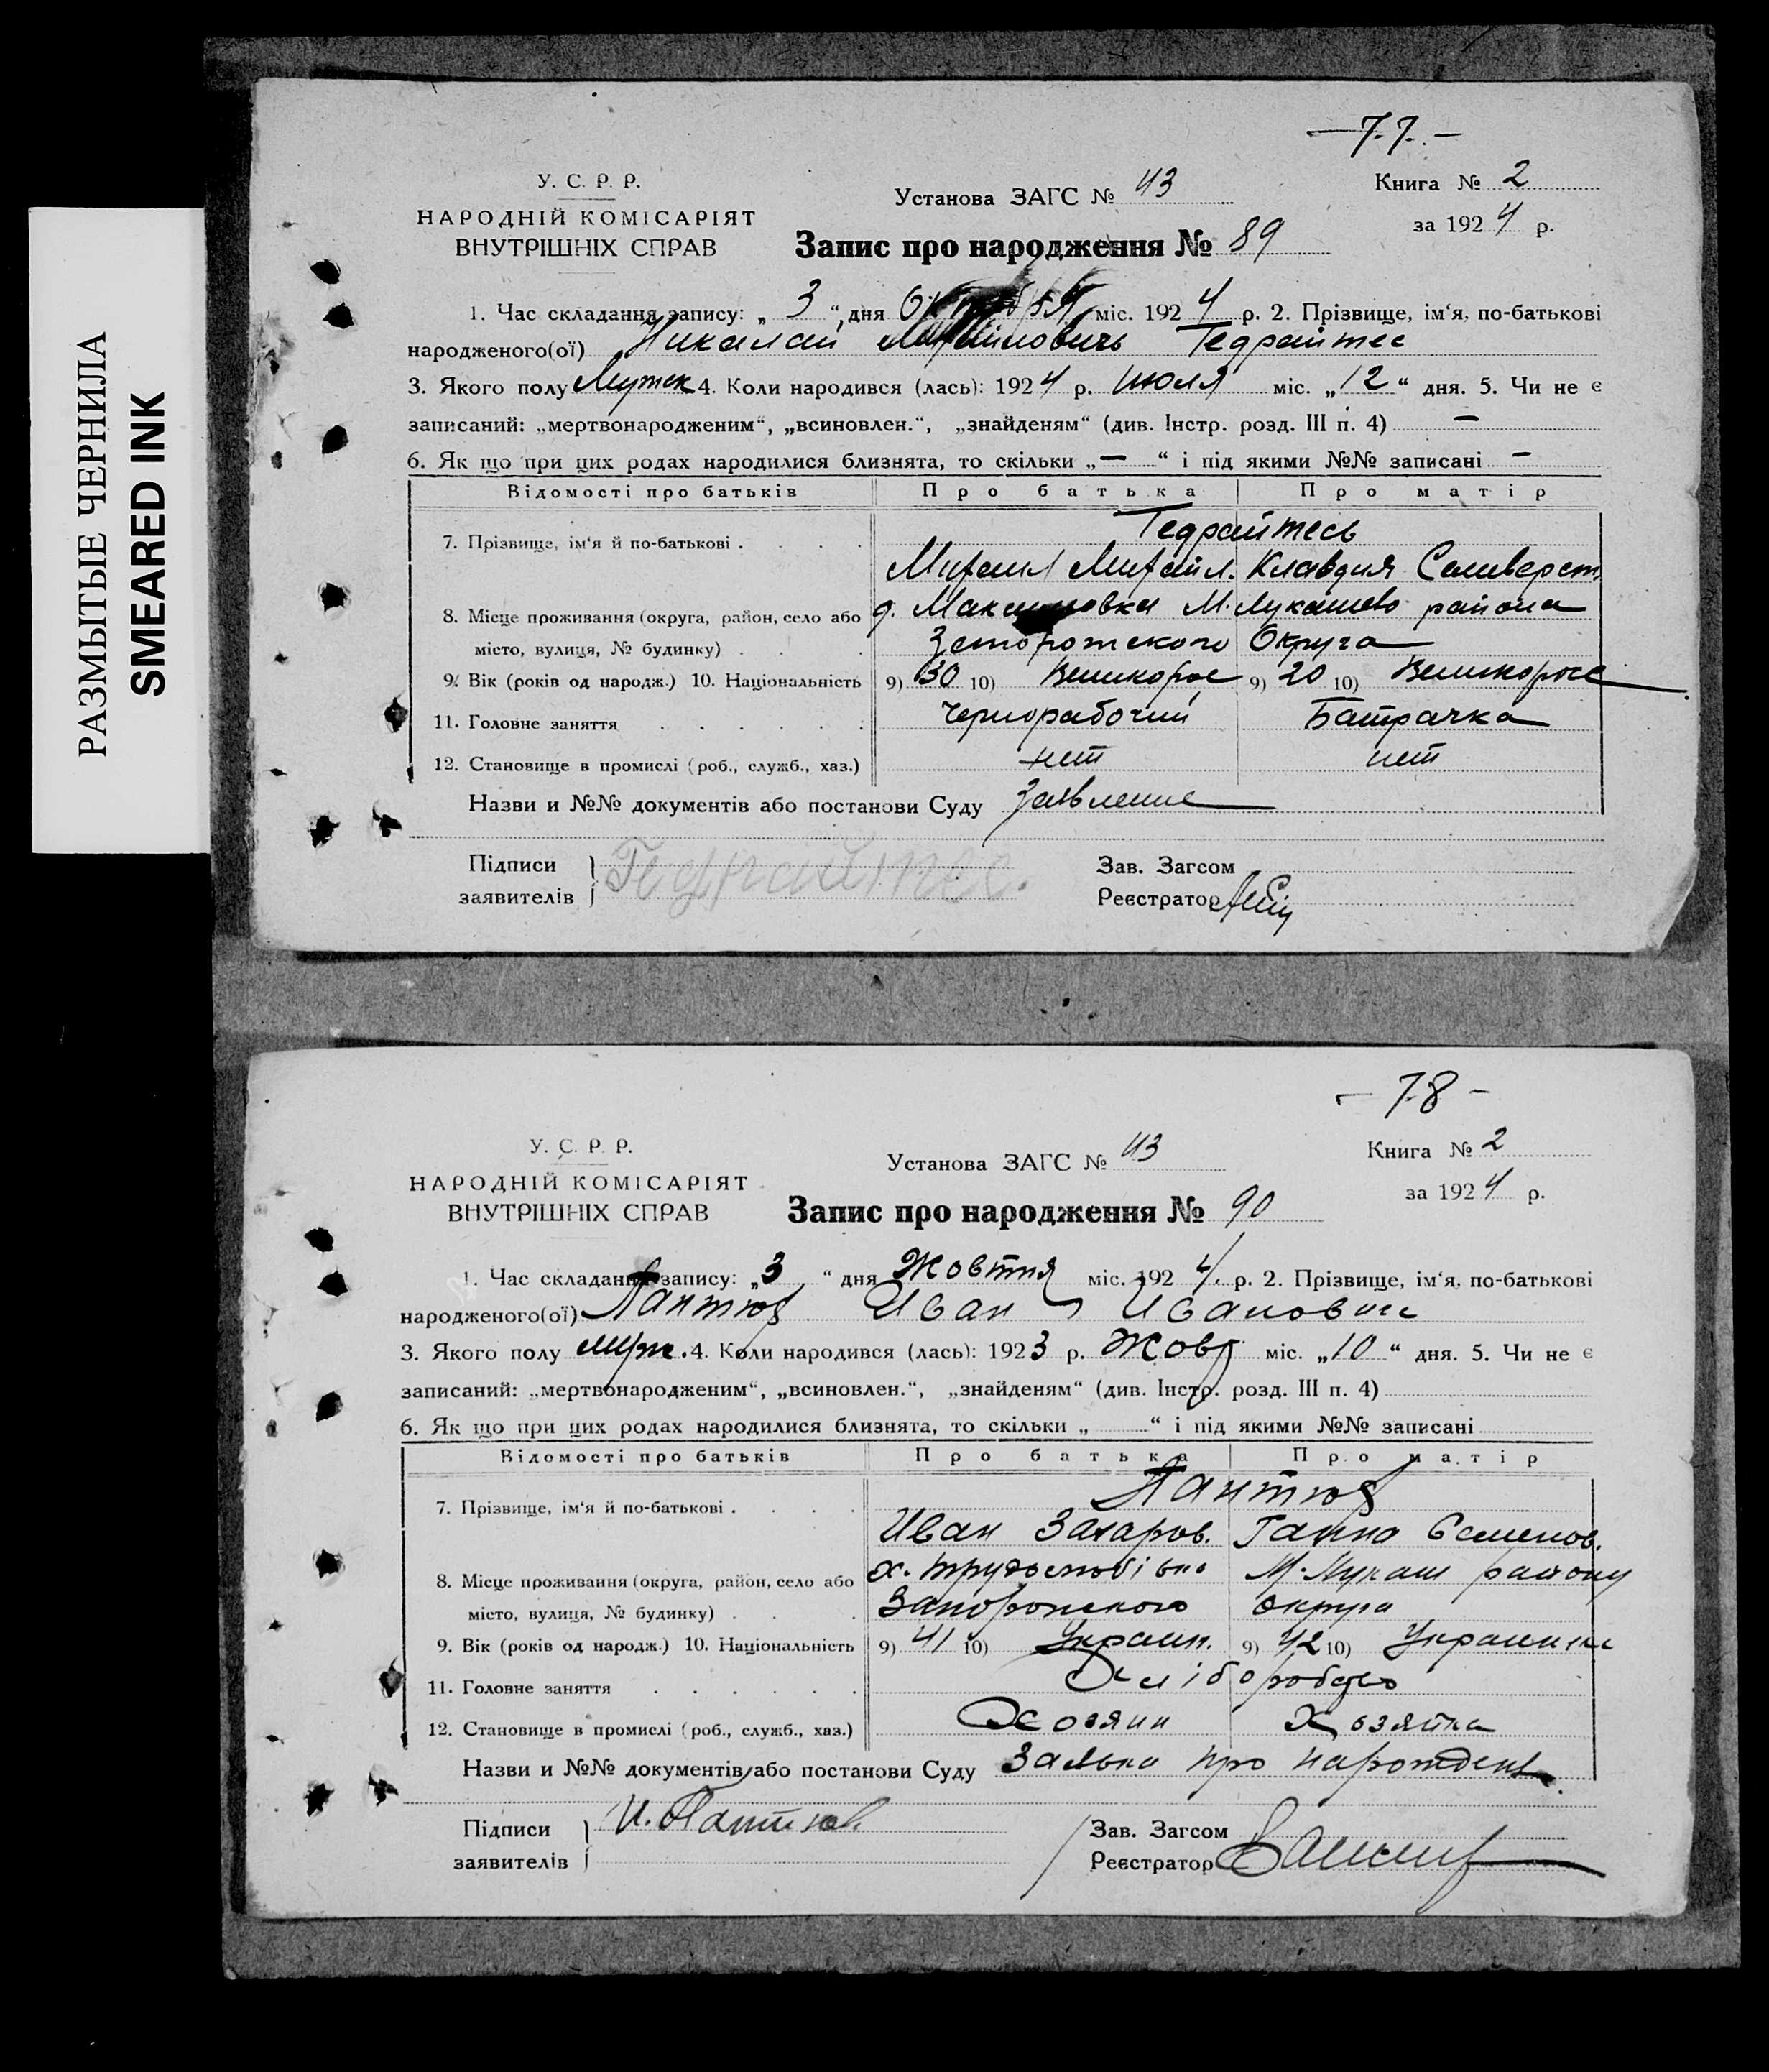 РАЗМЫТЫЕ ЧЕРНИЛА
SMEARED INK
—77.—
У. С. Р. Р.
НАРОДНІЙ КОМІСАРІЯТ
ВНУТРІШНІХ СПРАВ
Установа ЗАГС № 43
Книга № 2
за 1924 р.
Запис про народження № 89
1. Час складання запису: „ 3 “ дня Октября міс. 1924 р. 2. Прізвище, ім‘я, по-батькові
народженого(ої) Николай Михайловичь Гедрайтес
3. Якого полу Мужск 4. Коли народився (лась): 1924 р. Июля міс. „12“ дня. 5. Чи не є
записаний: „мертвонародженим“, „всиновлен.“, „знайденям“ (див. Інстр. розд. III п. 4) —
6. Як що при цих родах народилися близнята, то скільки „—“ і під якими №№ записані —
Відомості про батьків Про батька Про матір
Гедрайтесь
7. Прізвище, ім‘я й по-батькові . . . .
Михаил Михайл. Клавдия Селиверст.
8. Місце проживання (округа, район, село або д. Максимовка М. Лукашево района
місто, вулиця, № будинку) . . . Запорожского Округа
9. Вік (років од народж.) 10. Національність 9) 30 10) Великорос 9) 20 10) Великоросс
11. Головне заняття . . . . . . Чернорабочий Батрачка
12. Становище в промислі (роб., служб., хаз.) нет нет
Назви и №№ документів або постанови Суду Заявление
Підписи
заявителів
Гедрайтес.
Зав. Загсом
Реєстратор
— 78 —
У. С. Р. Р.
НАРОДНІЙ КОМІСАРІЯТ
ВНУТРІШНІХ СПРАВ
Установа ЗАГС № 43
Книга № 2
за 1924 р.
Запис про народження № 90
1. Час складання запису: „3 “ дня Жовтня міс. 1924 р. 2. Прізвище, ім‘я, по-батькові
народженого(ої) Пантюх Иван Иванович
3. Якого полу муж. 4. Коли народився (лась): 1923 р. Жовт міс. „10“ дня. 5. Чи не є
записаний: „мертвонародженим“, „всиновлен.“, „знайденям“ (див. Інстр. розд. III п. 4)
6. Як що при цих родах народилися близнята, то скільки „ “ і під якими №№ записані
Відомості про батьків Про батька Про матір
Пантюх
7. Прізвище, ім‘я й по-батькові . . . .
Иван Захаров. Ганна Семенов.
8. Місце проживання (округа, район, село або х. М. Лукаш району
місто, вулиця, № будинку) . . . Запорожского округа
9. Вік (років од народж.) 10. Національність 9) 41 10) Украин. 9) 42 10) Украинка
11. Головне заняття . . . . . . Хліборобство
12. Становище в промислі (роб., служб., хаз.) Хозяин Хозяйка
Назви и №№ документів або постанови Суду Заявка про нарожден.
Підписи
заявителів
И. Пантюх
Зав. Загсом
Реєстратор